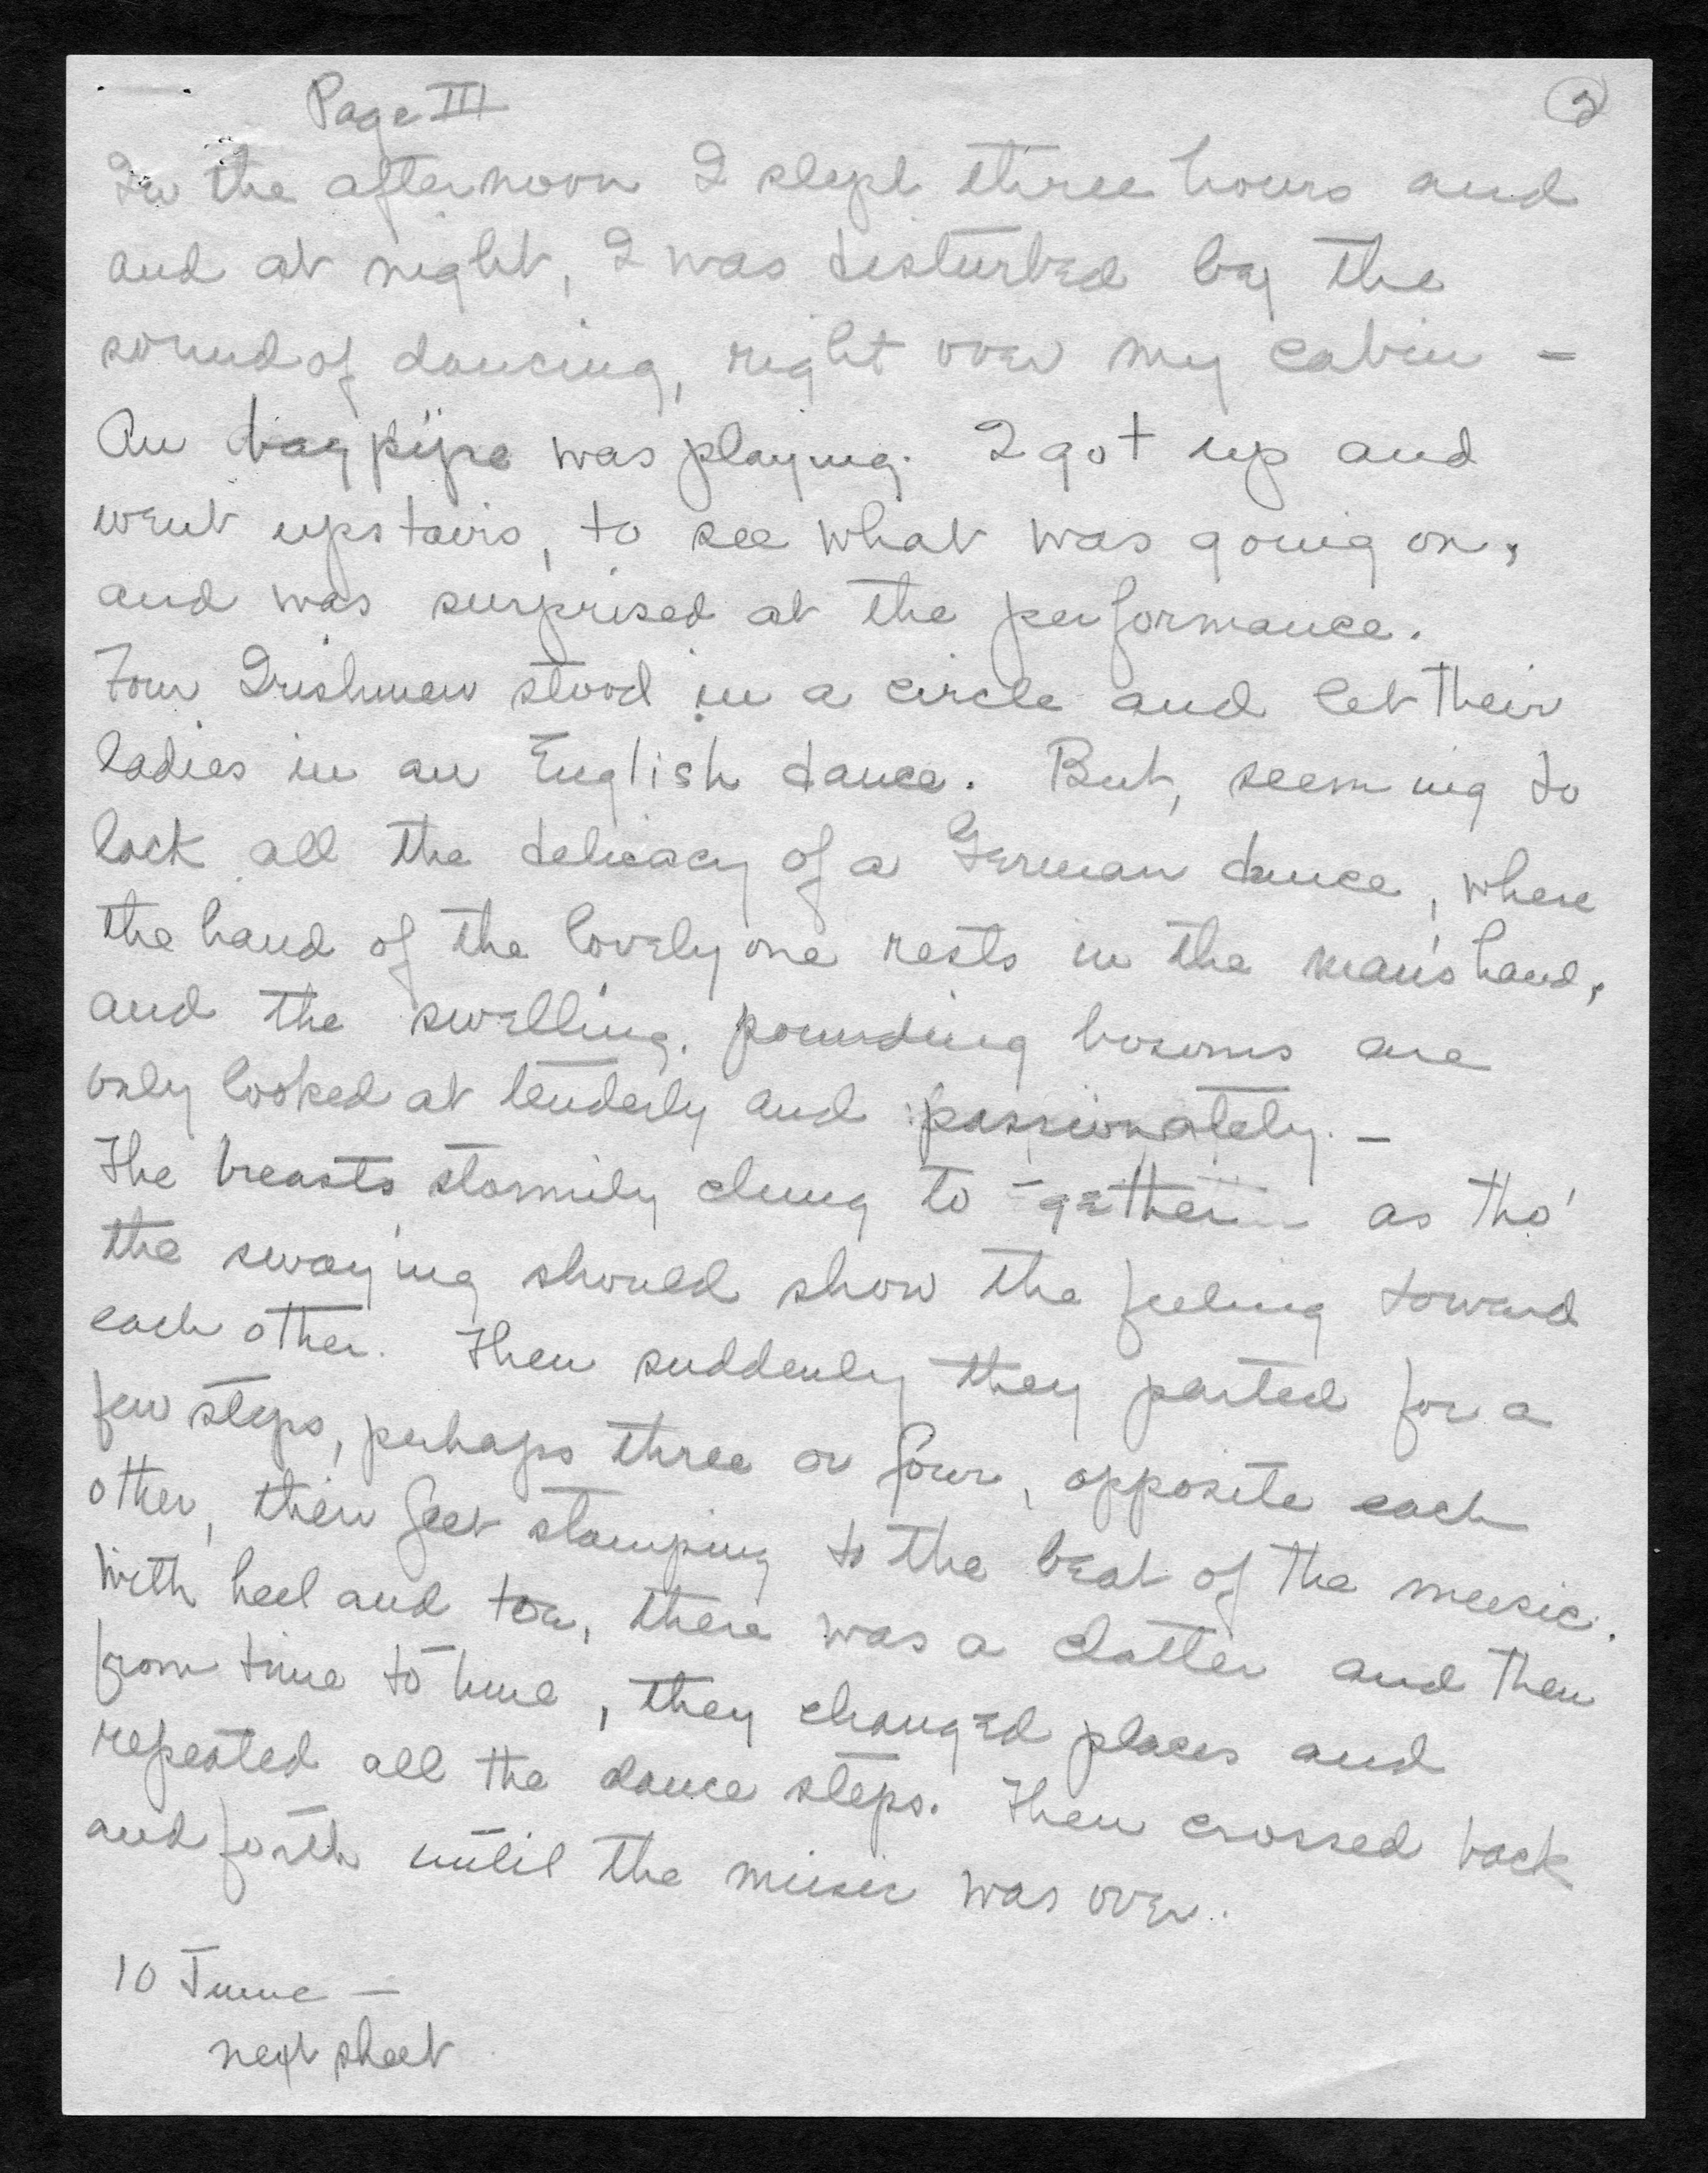 Page III
2
In the afternoon I slept three hours and
and at night, I was disturbed by the
sound of dancing, right over my cabin -
An bagpipe was playing. I got up and
went upstairs, to see what was going on,
and was surprised at the performance.
Four Irishmen stood in a circle and let their
ladies in an English dance. But, seeming to
lack all the delicacy of a German dance, where
the hand of the lovely one rests in the man's hand,
and the swelling, pounding bosoms are
only looked at tenderly and passionately. -
The breasts stormily clung to-gether as tho'
the swaying should show the feeling toward
each other. Then suddenly they parted for a
few steps, perhaps three or four, opposite each
other, their feet stamping to the beat of the music.
With heel and toe, there was a clatter and then
from time to time, they changed places and
repeated all the dance steps. Then crossed back
and forth until the music was over.
10 June -
next sheet